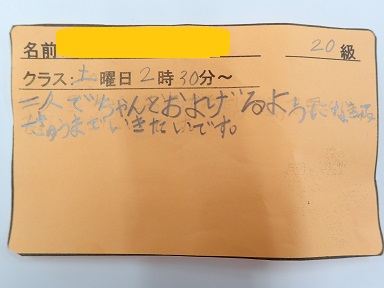 名前 20級
クラス:土曜日2時30分~
一人でちゃんとおよげるような
きゅうまでいきたいです。